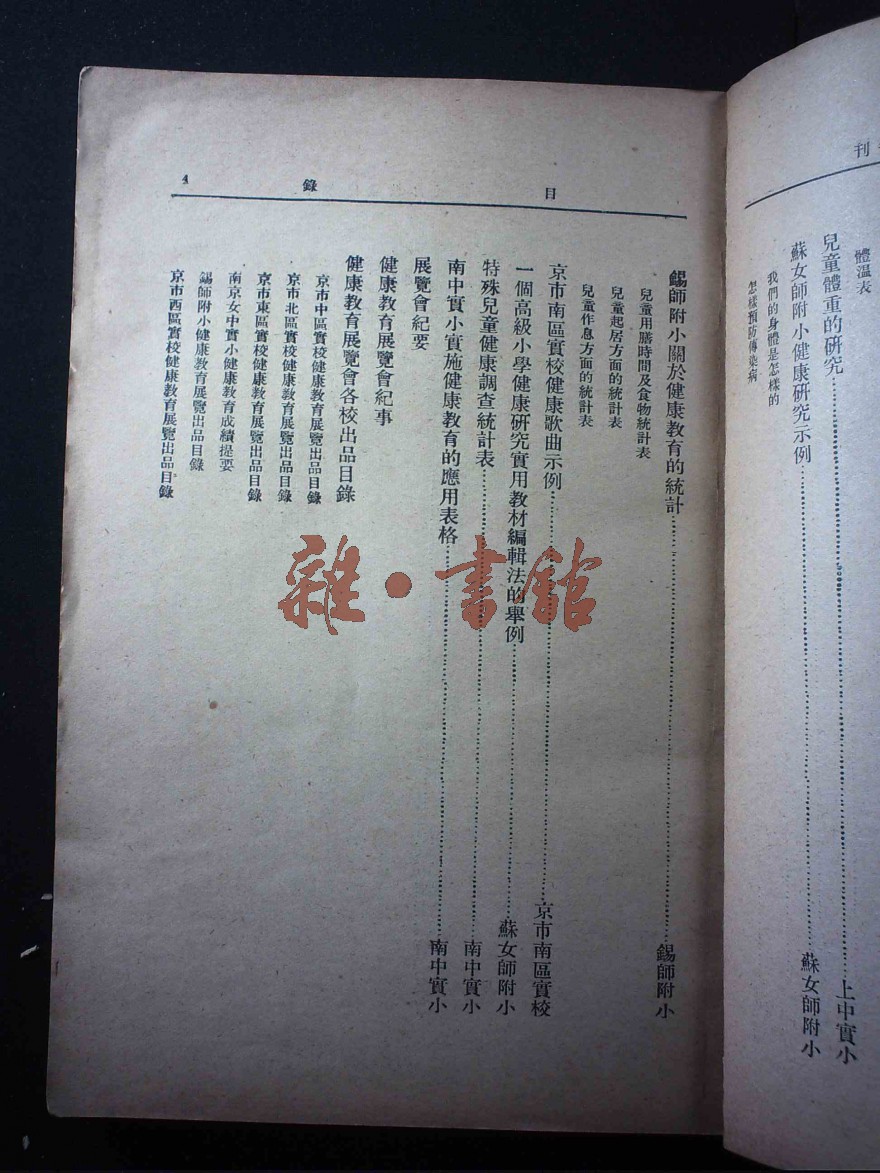 刊
體溫表
兒童體重的研究……上中實小
蘇女師附小健康研究示例……蘇女師附小
我們的身體是怎樣的
怎樣預防傳染病
目 錄 4
錫師附小關於健康教育的統計……錫師附小
兒童用膳時間及食物統計表
兒童起居方面的統計表
兒童作息方面的統計表
京市南區實校健康歌曲示例……京市南區實校
一個高級小學健康研究實用教材編輯法的舉例……蘇女師附小
特殊兒童健康調查統計表……南中實小
南中實小實施健康教育的應用表格……南中實小
展覽會紀要
健康教育展覽會紀事
健康教育展覽會各校出品目錄
京市中區實校健康教育展覽出品目錄
京市北區實校健康教育展覽出品目錄
京市東區實校健康教育展覽出品目錄
南京女中實小健康教育成績提要
錫師附小健康教育展覽出品目錄
京市西區實校健康教育展覽出品目錄
雜·書館